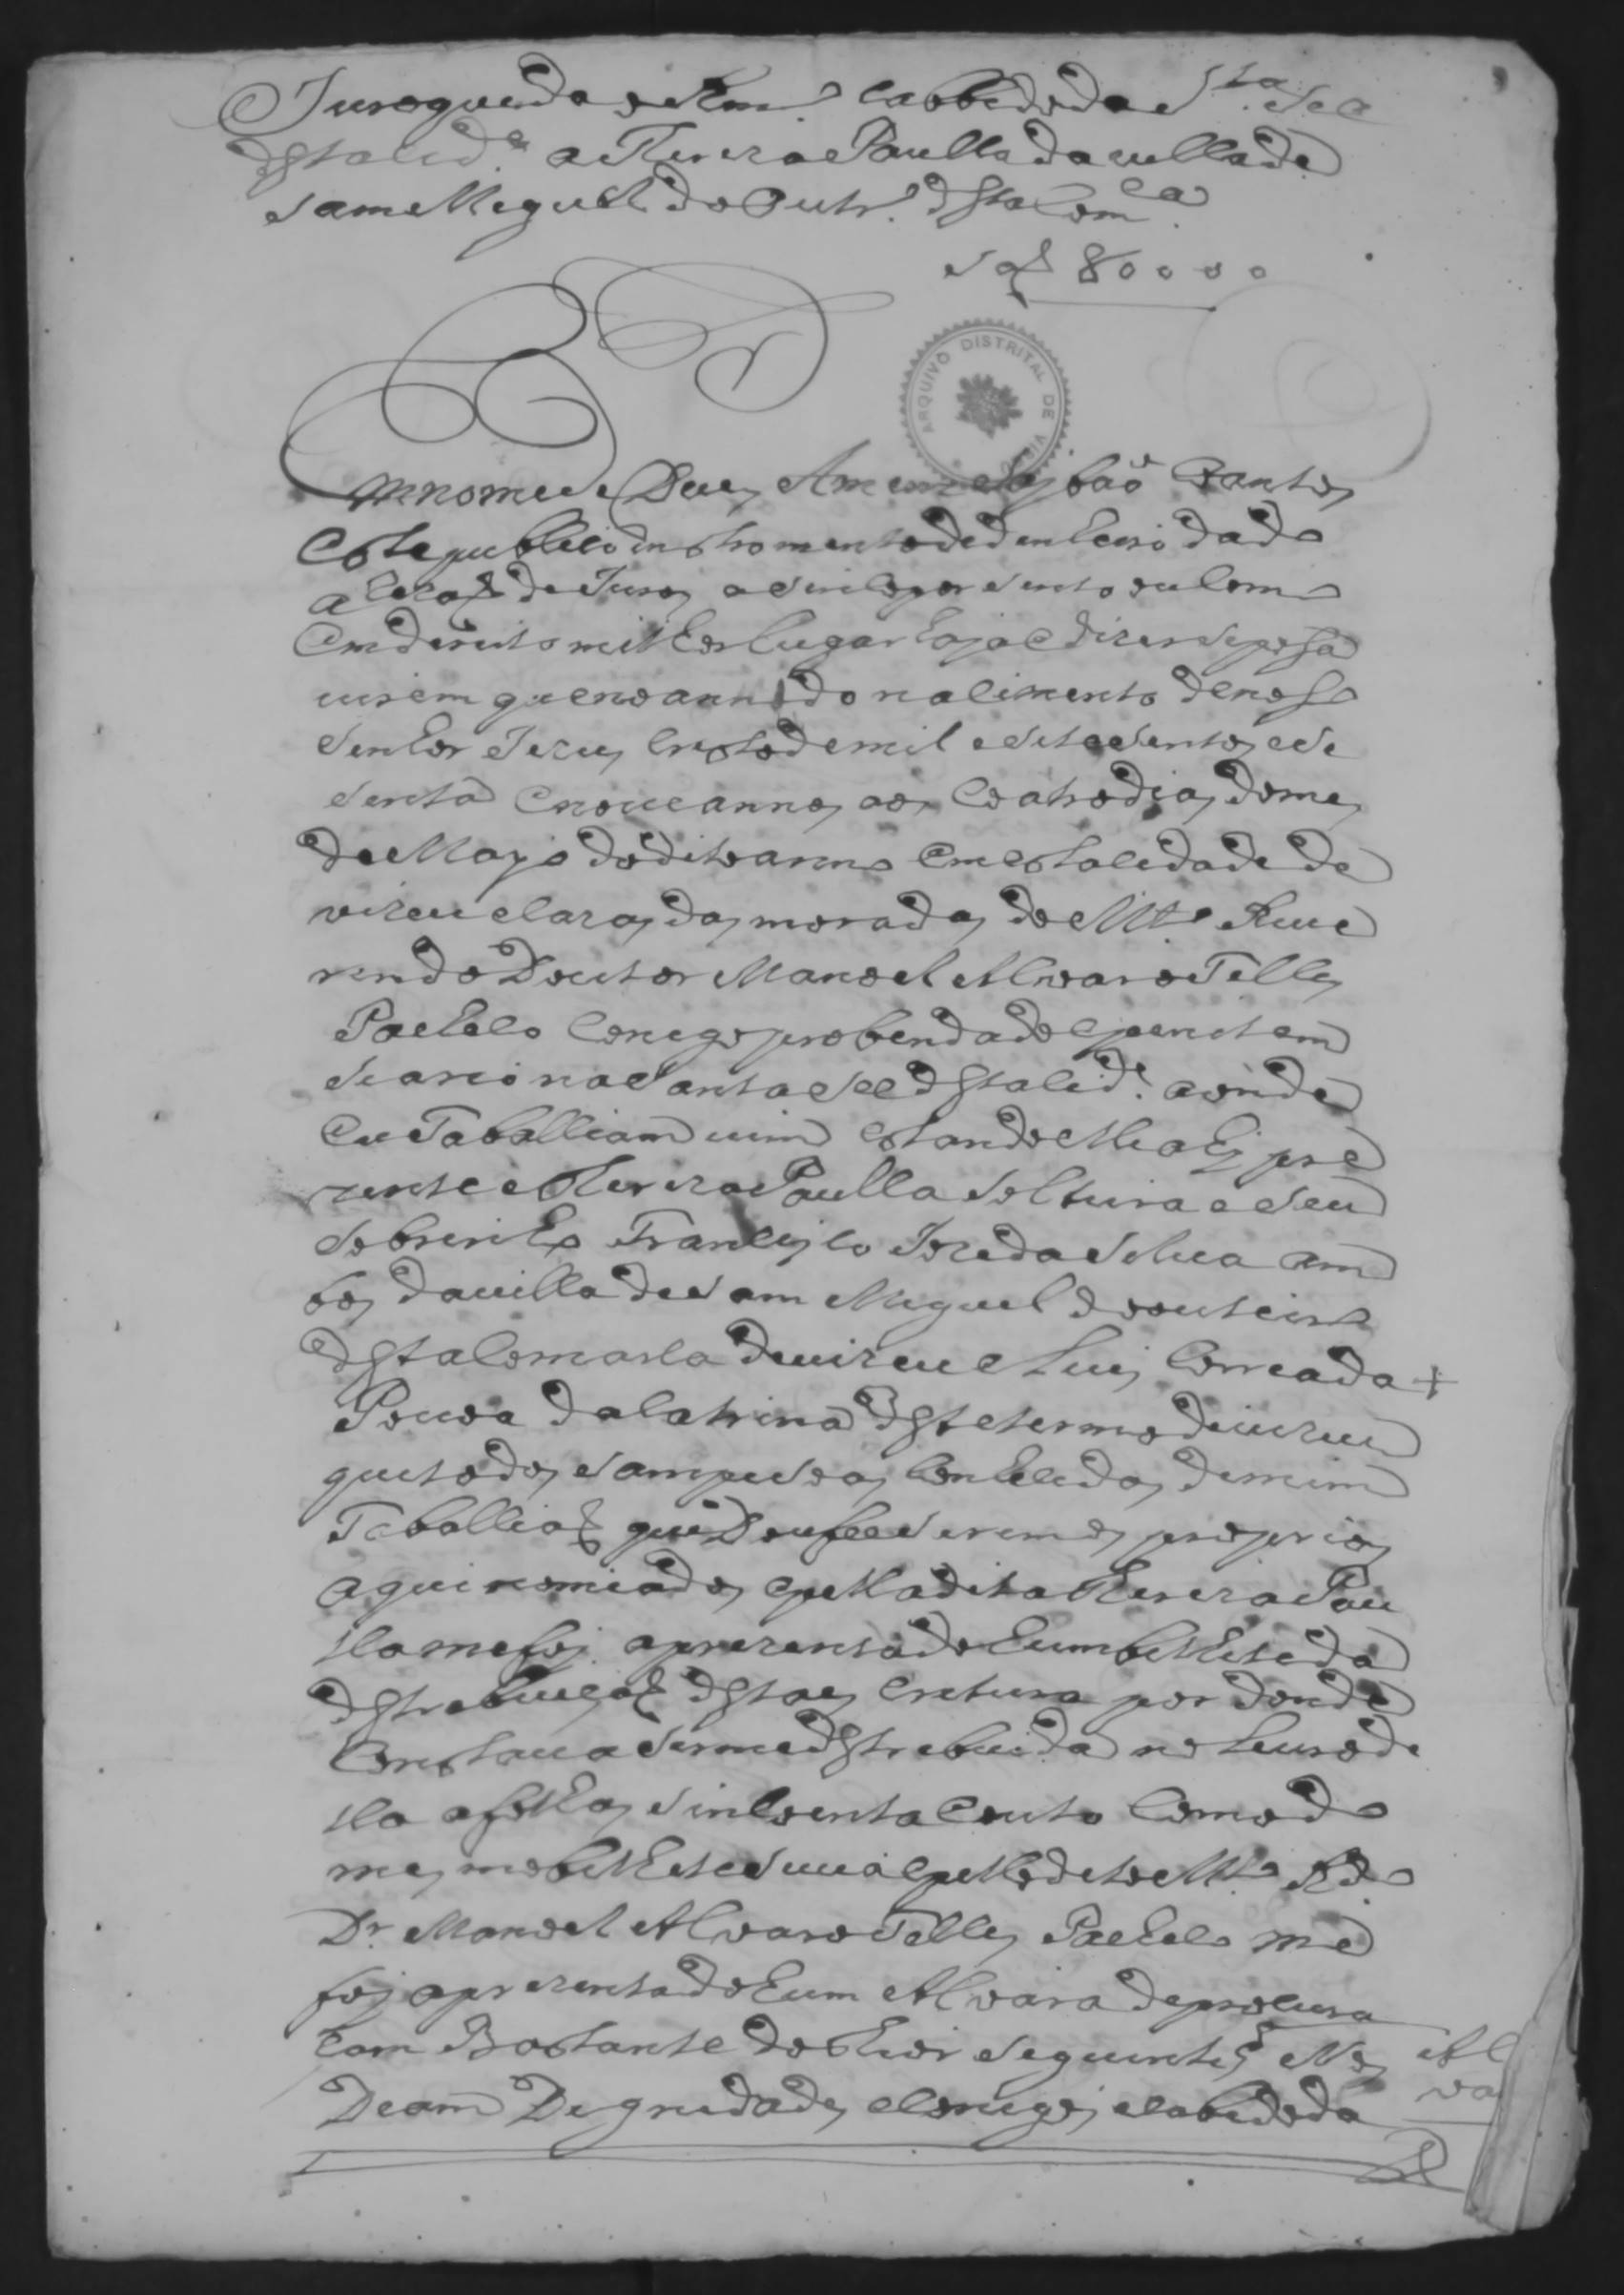 Juro que da o Rmo Cabbido da Sta See
desta cid.e a Thereza Paulla da villa de
Sam Miguel do Outr.o desta Com.ca
São 80000
ARQUIVO DISTRITAL DE VISEU
Em nome de Deus Amen Saybão quantos
Este publico instromento de dinheiro dado
a rezão de Juro a sinco por sento ou como
em dereito milhor lugar haja e dizer se possa
virem que no anno do nascimento de nosso
Senhor Jezus Cristo de mil e setesentos e se
senta e nove annos aos coatro dias do mes
de Mayo do dito anno em esta cidade de
vizeu e cazas das moradas do Mto Reve
rendo Doutor Manoel Alvaro Telles
Pacheco Conego prebendado e peniten
siario na Santa See desta cid.e aonde
eu Taballiam vim estando ahi pre
zente Thereza Paulla solteira e seu
sobrinho Francisco Joze da Silva am
bos da villa de Sam Miguel do outeiro
desta comarca de vizeu e Luis Correa da +
Povoa da Catrina deste termo de vizeu
que todos sam pesoas conhecidas de mim
Taballião que dou fee serem os proprios
aqui nomiados e pella dita Thereza Pau
lla me foi aprezentado hum bilhete da
destrebuição desta escretura por donde
constava ser me destrebuida no livro de
lla a folhas sincoenta e outo como do
mesmo bilhete se via e pello dito Mto Rdo
Dr Manoel Alvaro Telles Pacheco me
foi aprezentado hum Alvara de procura
çam Bastante do theor seguinte Nos
Deam Degnidades Conegos e Cabido da
Al
va